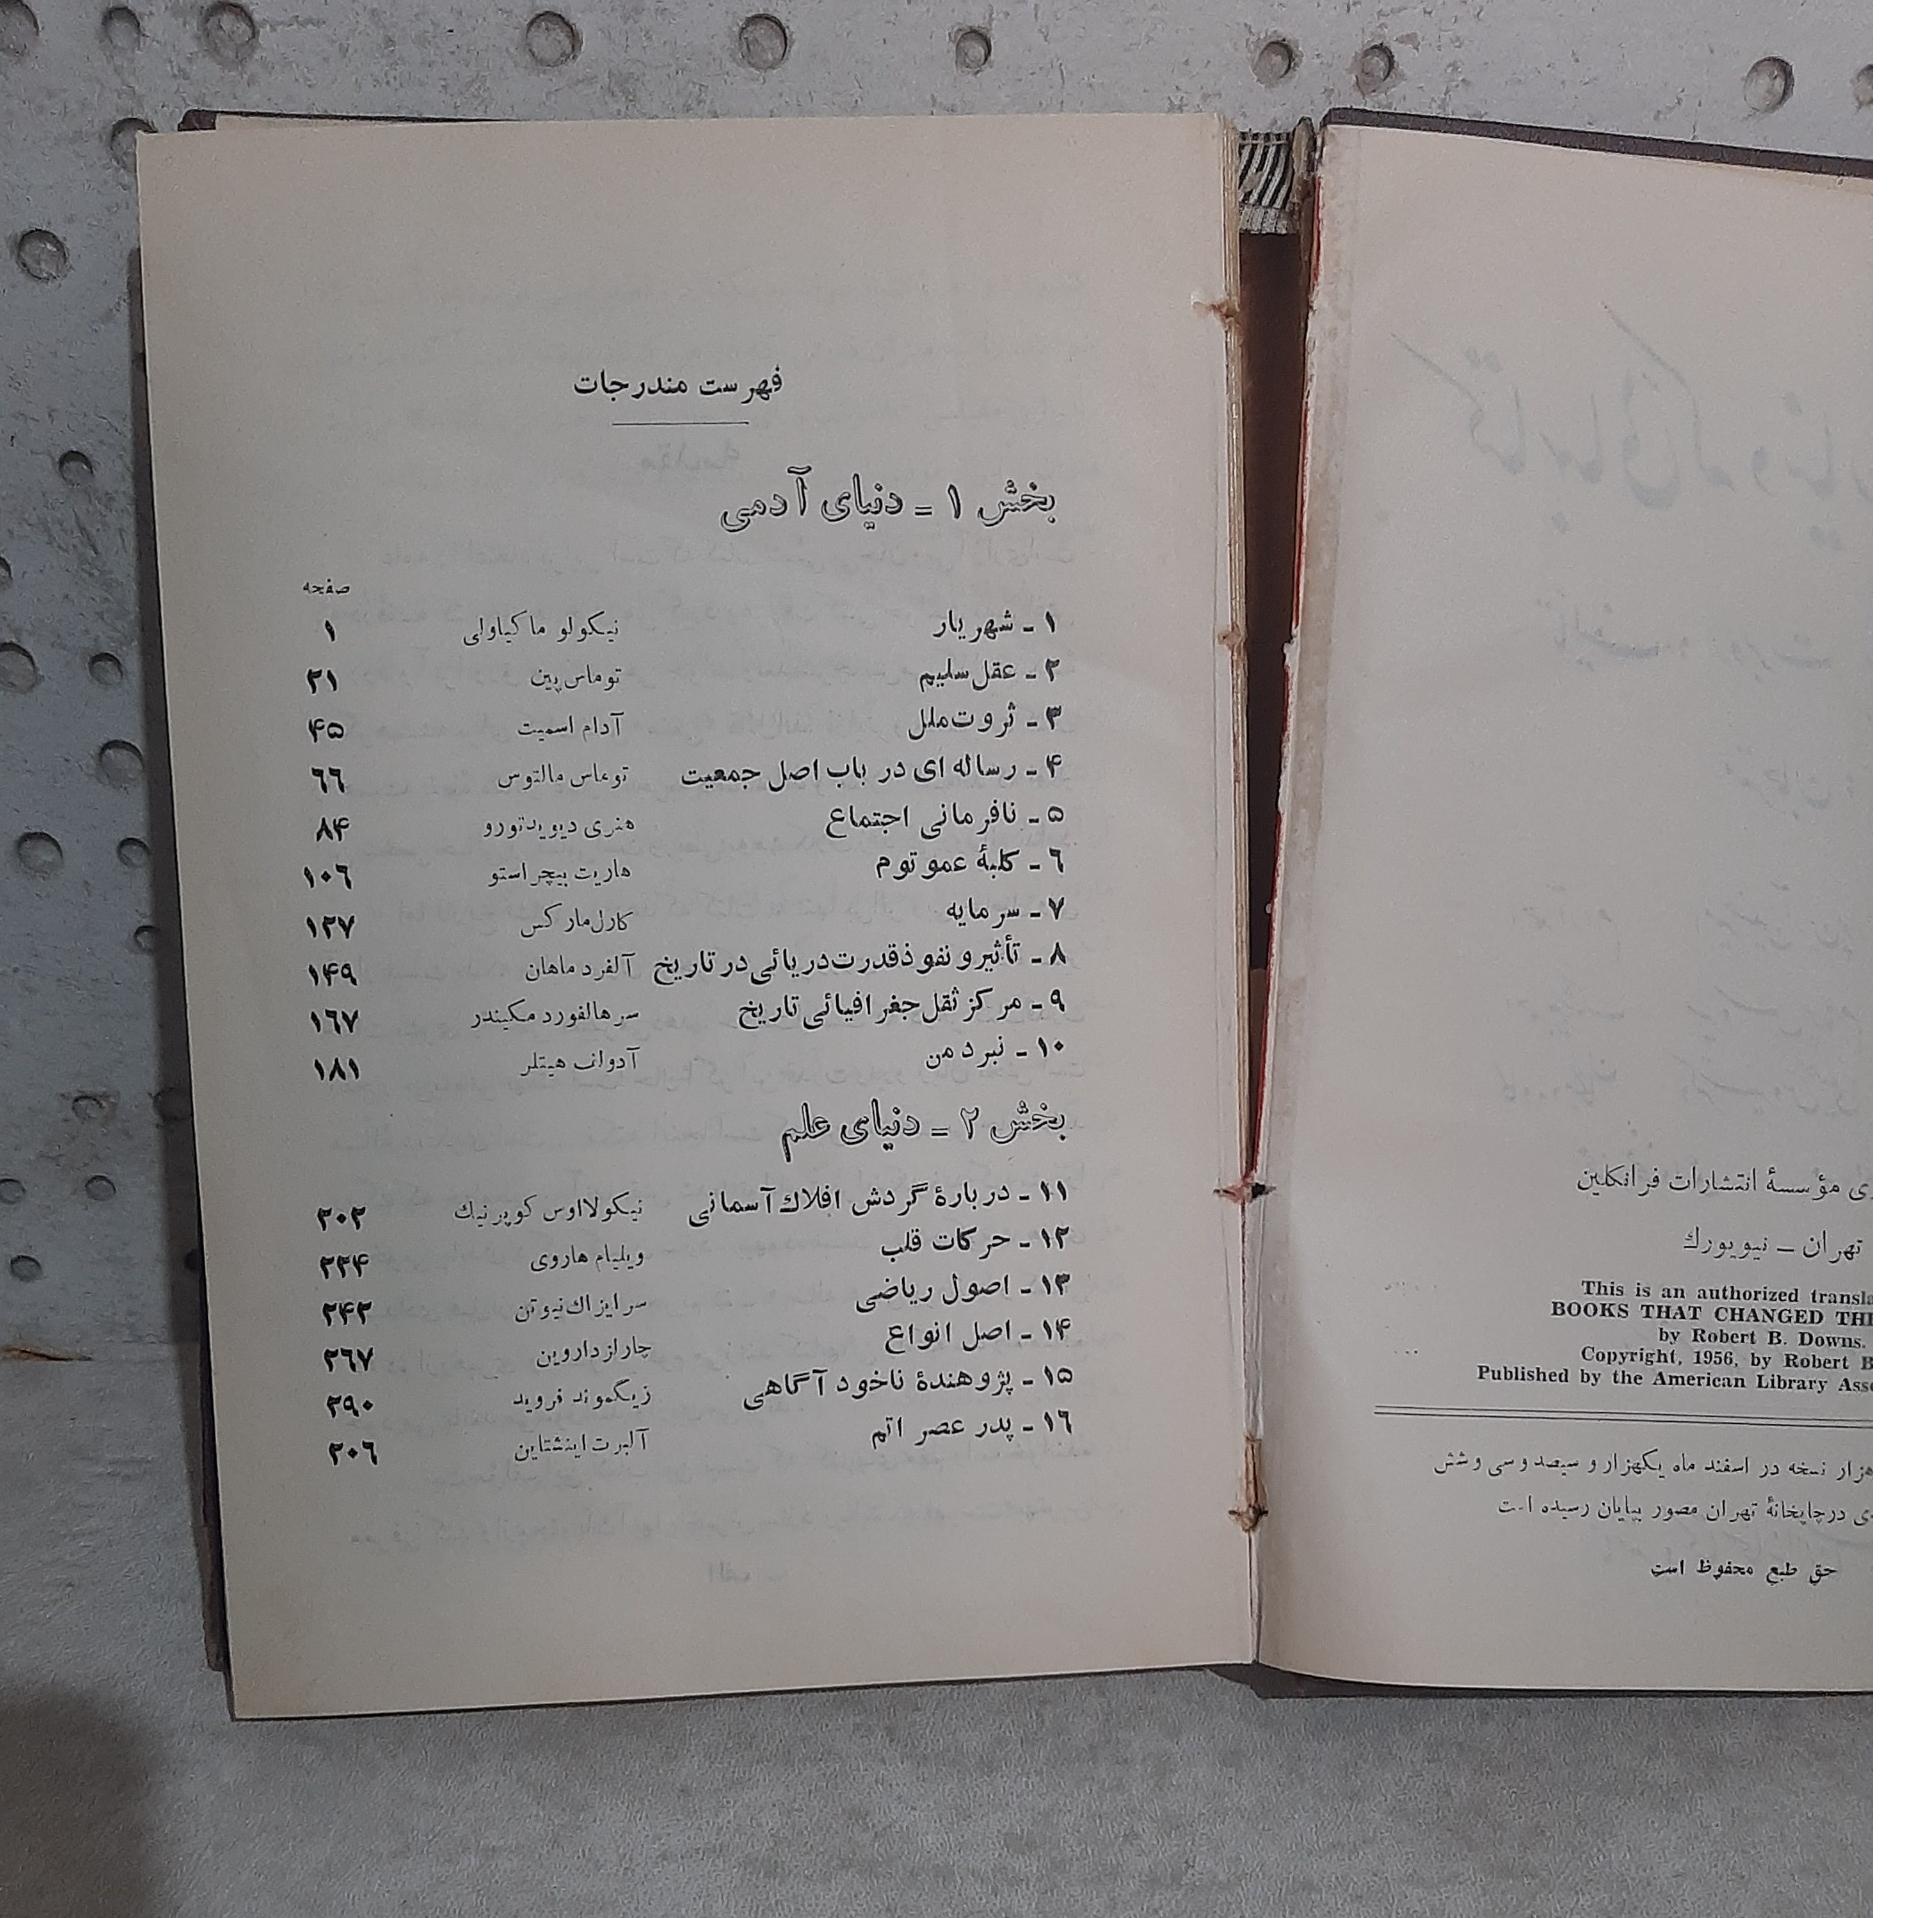 فهرست مندرجات
بخش ۱ ـ دنیای آدمی
صفحه
۱ ـ شهریار نیکولو ماکیاولی ۱
۲ ـ عقل سلیم توماس پین ۲۱
۳ ـ ثروت ملل آدام اسمیت ۴۵
۴ ـ رساله ای در باب اصل جمعیت توماس مالتوس ۶۶
۵ ـ نافرمانی اجتماع هنری دیوید تورو ۸۴
۶ ـ کلبهٔ عمو توم هاریت بیچر استو ۱۰۶
۷ ـ سرمایه کارل مارکس ۱۲۷
۸ ـ تأثیر و نفوذ قدرت دریائی در تاریخ آلفرد ماهان ۱۴۹
۹ ـ مرکز ثقل جغرافیائی تاریخ سر هالفورد مکیندر ۱۶۷
۱۰ ـ نبرد من آدولف هیتلر ۱۸۱
بخش ۲ ـ دنیای علم
۱۱ ـ دربارهٔ گردش افلاك آسمانی نیکولااوس کوپرنیك ۲۰۲
۱۲ ـ حرکات قلب ویلیام هاروی ۲۲۴
۱۳ ـ اصول ریاضی سر ایزاك نیوتن ۲۴۲
۱۴ ـ اصل انواع چارلز داروین ۲۶۷
۱۵ ـ پژوهندهٔ ناخود آگاهی زیگموند فروید ۲۹۰
۱۶ ـ پدر عصر اتم آلبرت اینشتاین ۳۰۶
مؤسسهٔ انتشارات فرانکلین
تهران ـ نیویورك
This is an authorized
BOOKS THAT CHANGED
by Robert B. Downs.
Copyright, 1956, by Robert
Published by the American Library
هزار نسخه در اسفند ماه یکهزار و سیصد و سی و شش
در چاپخانهٔ تهران مصور بپایان رسیده است
حق طبع محفوظ است